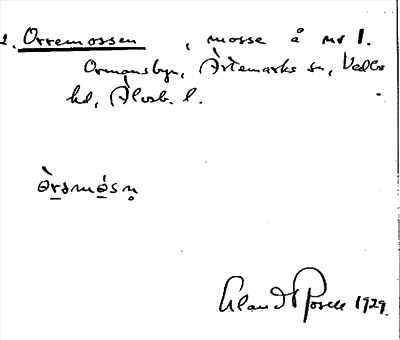 2. Orremossen, mosse å nr 1.
Ormansbyn, Ärtemarks sn, Vedbo
hd, Älvsb. l.
òrəmǿsn̥
1929.